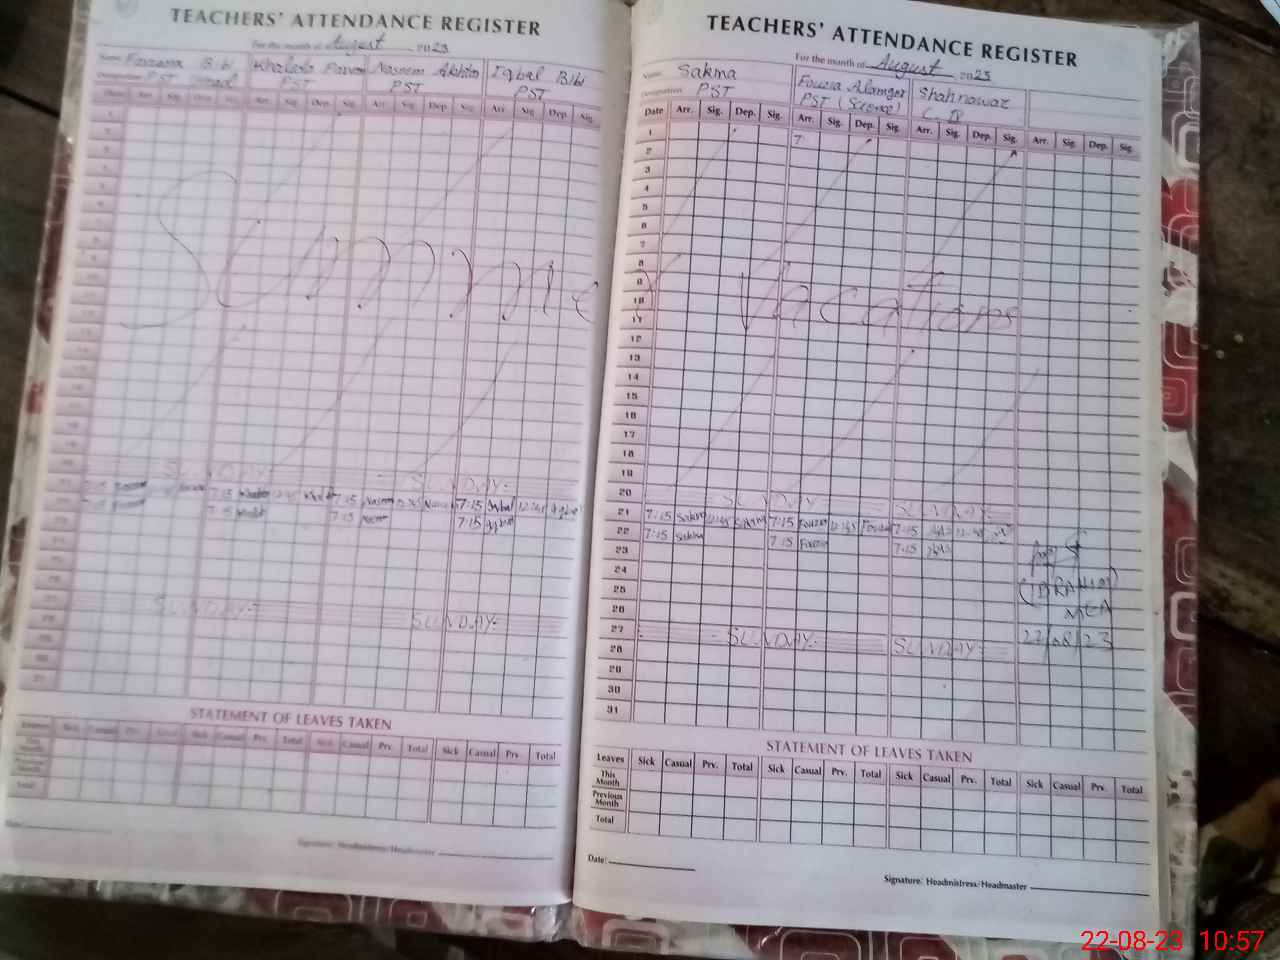 TEACHERS' ATTENDANCE REGISTER
For the month of August 2023
Name Farzana Bibi Khalida Parven Naseem Akhtar Iqbal Bibi
Designation PST PST PST PST
Date Arr. Sig. Dep. Sig. Arr. Sig. Dep. Sig. Arr. Sig. Dep. Sig. Arr. Sig. Dep. Sig.
Summer
SUNDAY SUNDAY
7:15 7:15 12:45 7:15 Naseem 12:45 7:15 Iqbal 12:45 Iqbal
7:15 7:15 7:15 Iqbal
SUNDAY SUNDAY
STATEMENT OF LEAVES TAKEN
Leaves Sick Casual Prv. Total Sick Casual Prv. Total Sick Casual Prv. Total Sick Casual Prv. Total
This Month
Previous Month
Total
Signature: Headmistress/Headmaster
TEACHERS' ATTENDANCE REGISTER
For the month of August 2023
Name Sakma Fouzia Alamger Shahnawaz
Designation PST PST (Science)
Date Arr. Sig. Dep. Sig. Arr. Sig. Dep. Sig. Arr. Sig. Dep. Sig. Arr. Sig. Dep. Sig.
1 7
2
3
4
5
6
7
8
9
Vacations
10
11
12
13
14
15
16
17
18
19
20 SUNDAY SUNDAY
21 7:15 Sakma 12:45 Sakma 7:15 Fouzia 12:45 Fouzia 7:15
22 7:15 Sakma 7:15 Fouzia 7:15
23
24
25 (IBRAHIM)
26 MEA
27 SUNDAY SUNDAY 22/08/23
28
29
30
31
STATEMENT OF LEAVES TAKEN
Leaves Sick Casual Prv. Total Sick Casual Prv. Total Sick Casual Prv. Total Sick Casual Prv. Total
This Month
Previous Month
Total
Date:
Signature: Headmistress/Headmaster
22-08-23 10:57